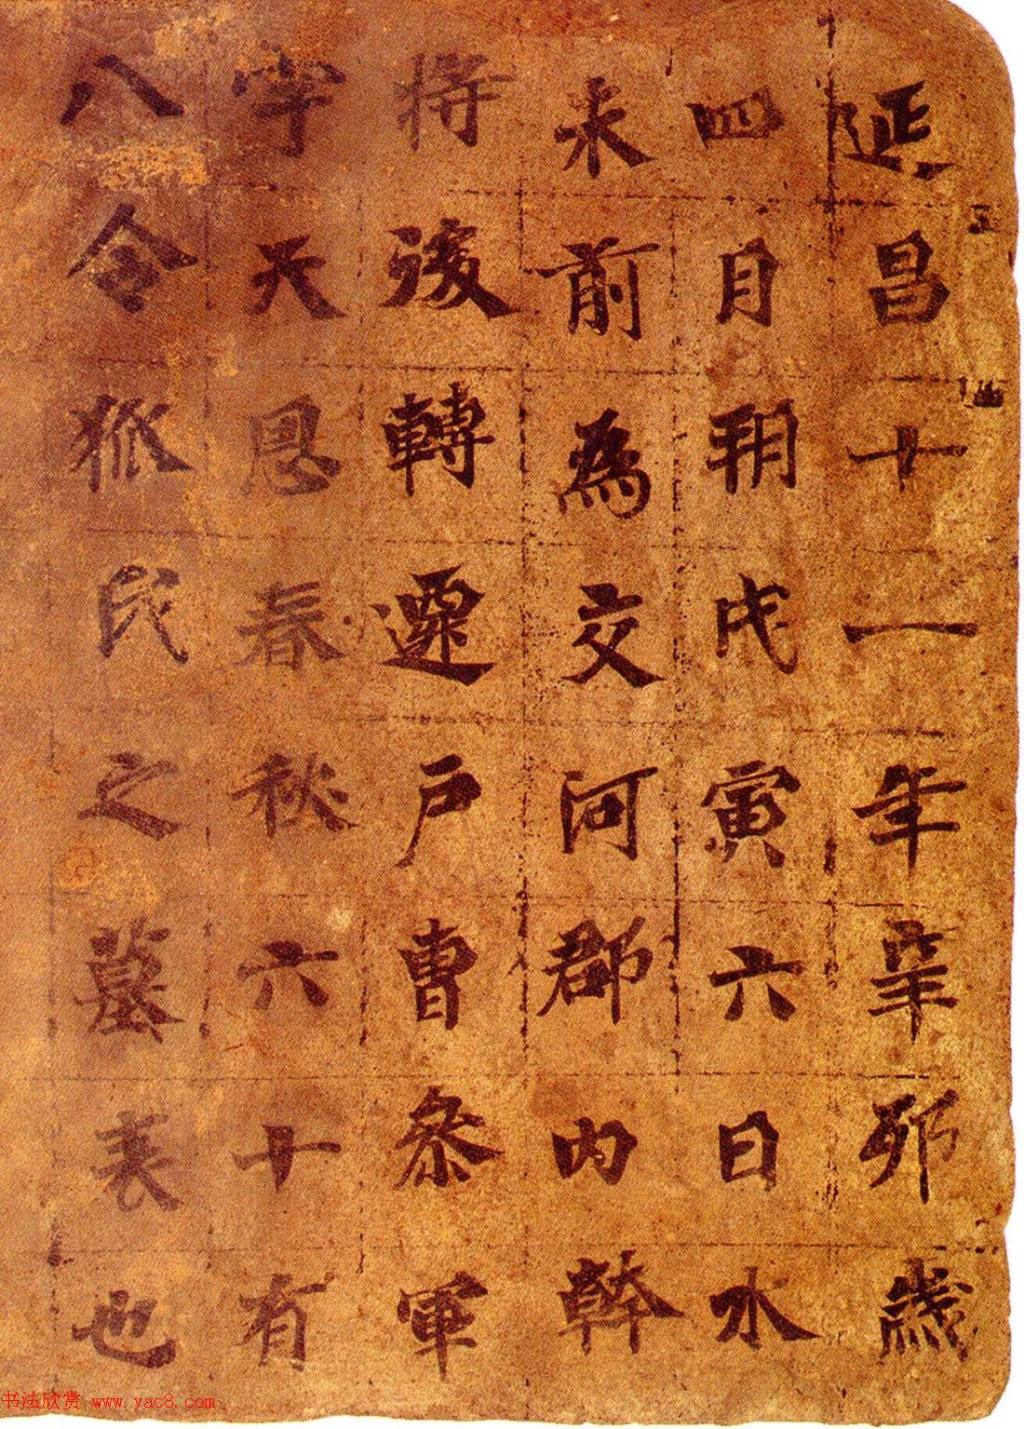 延昌十一年辛卯歲
四月朔戊寅六日水
未前為交河郡內幹
將後轉遷戶曹參軍
字天恩春秋六十有
八令狐氏之墓表也
书法欣赏 www.yac8.com